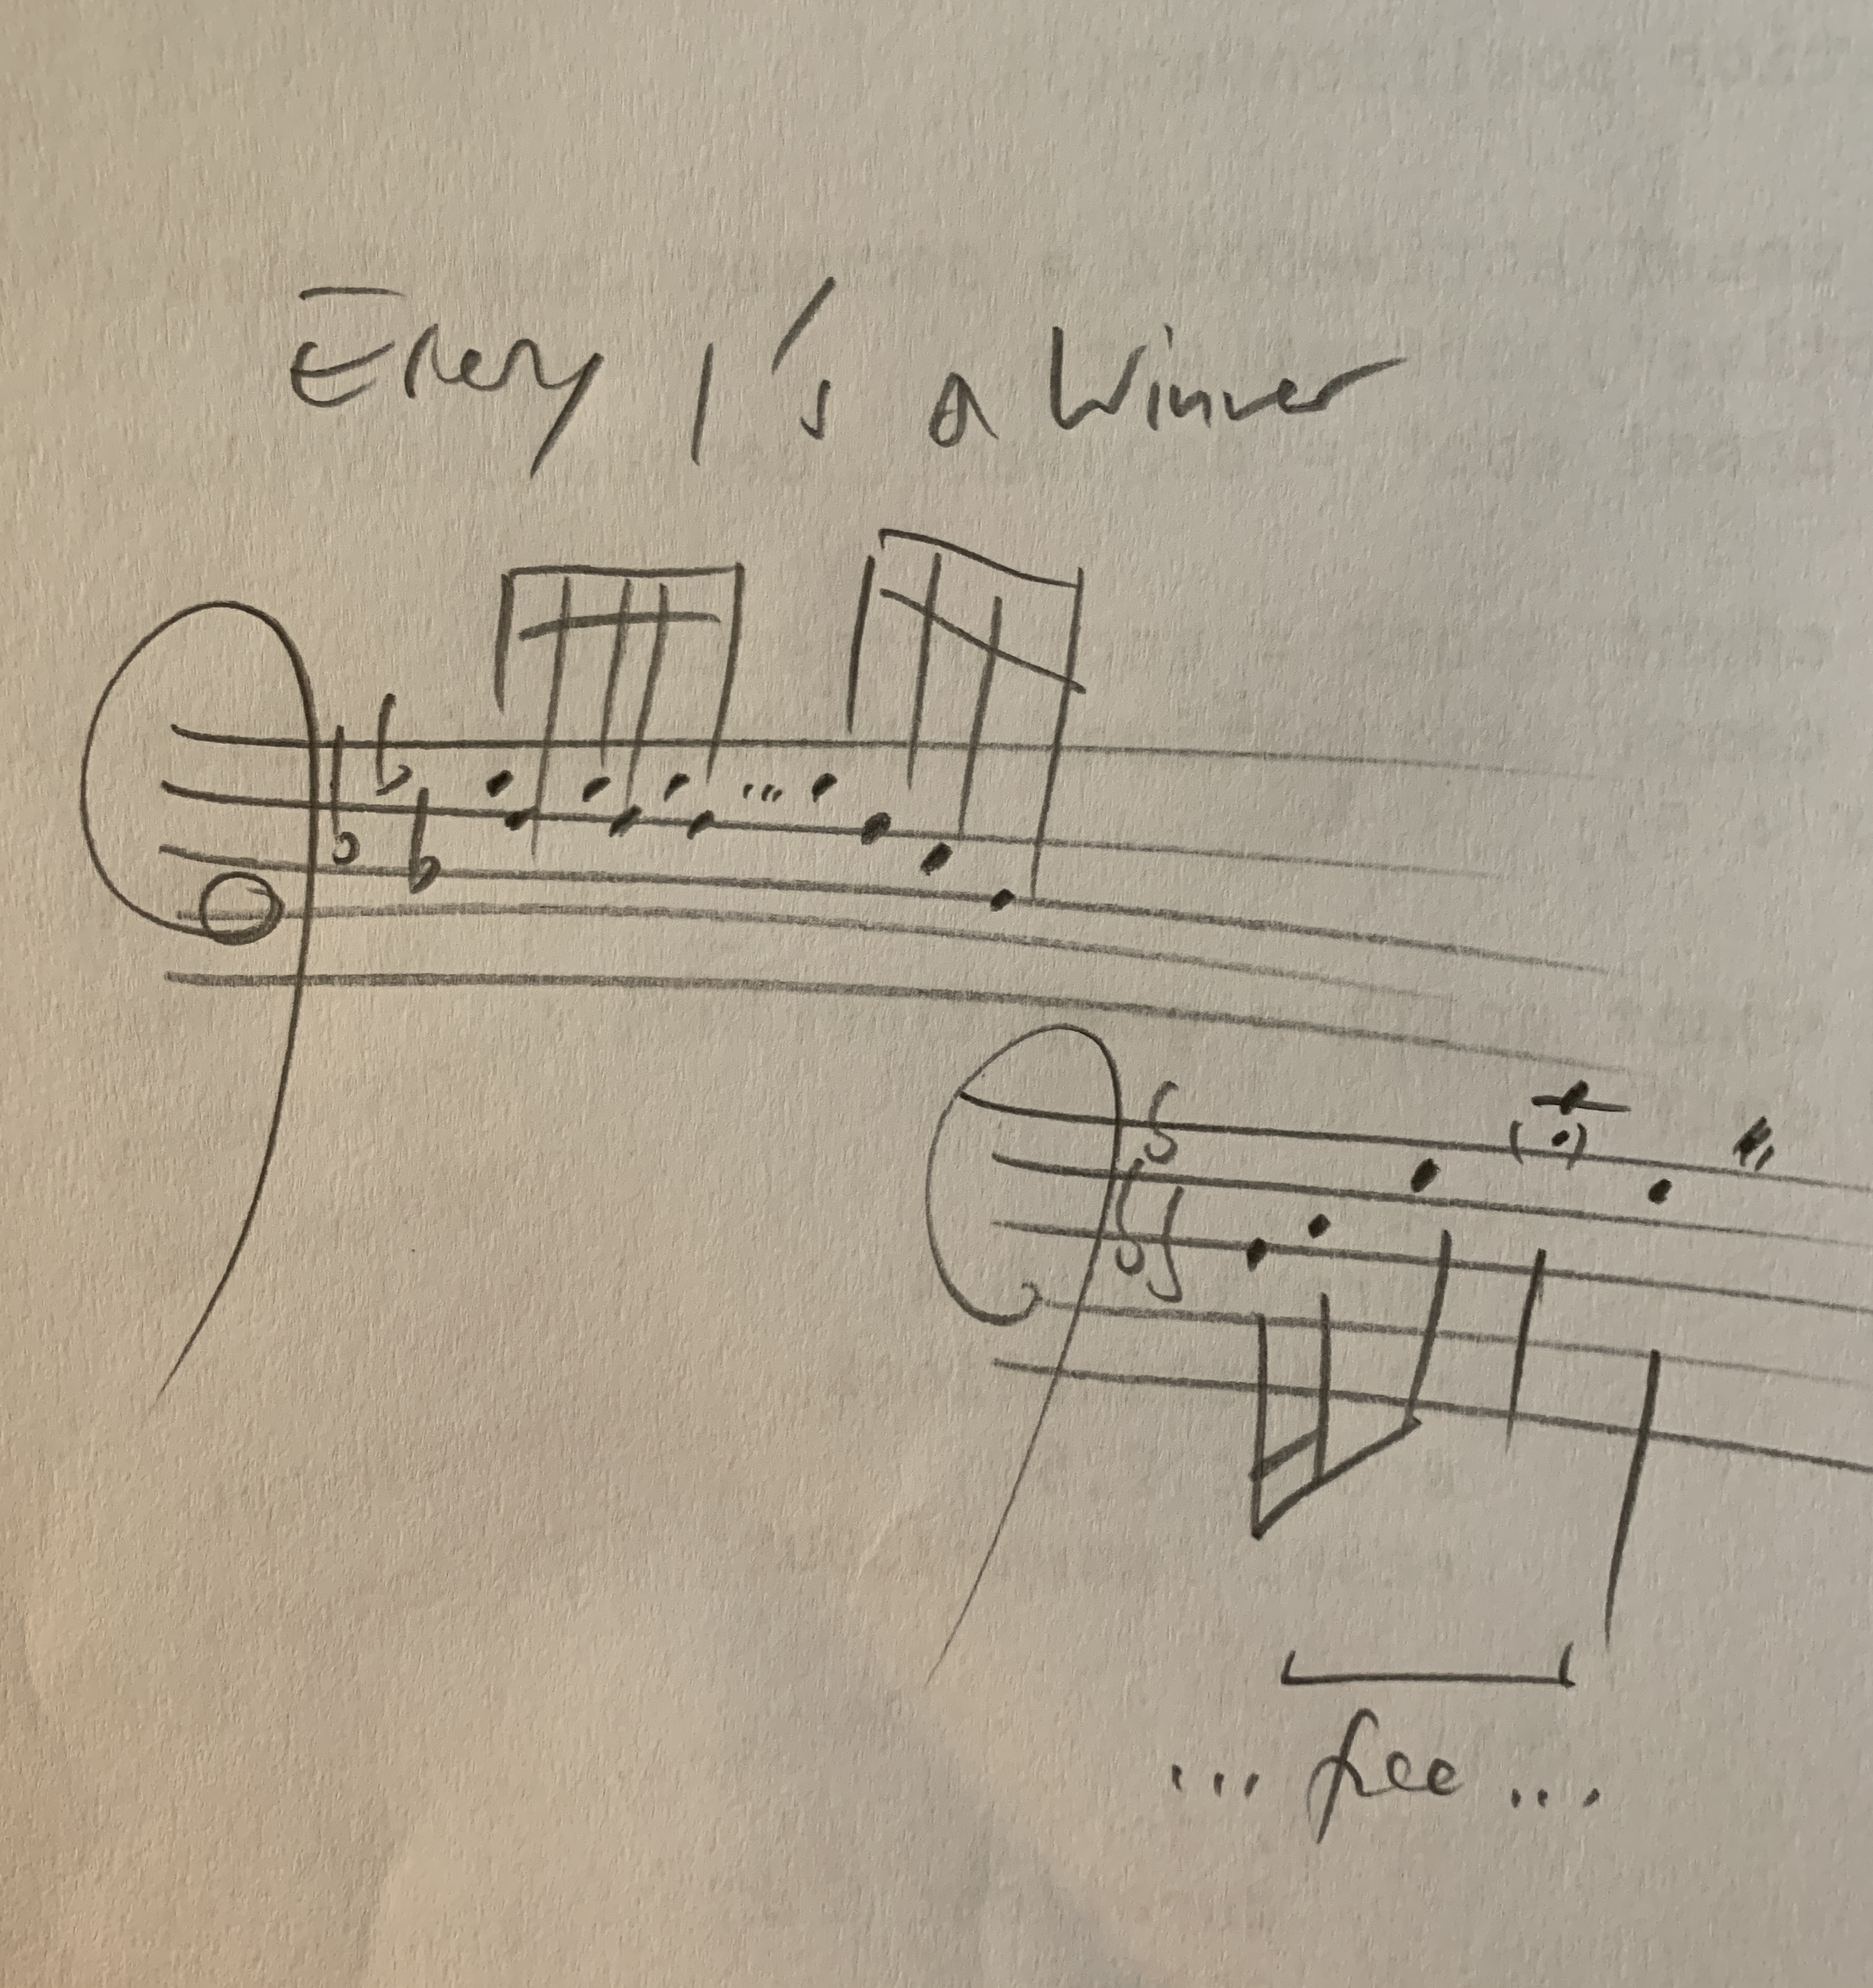 Every 1's a Winner
... free ...